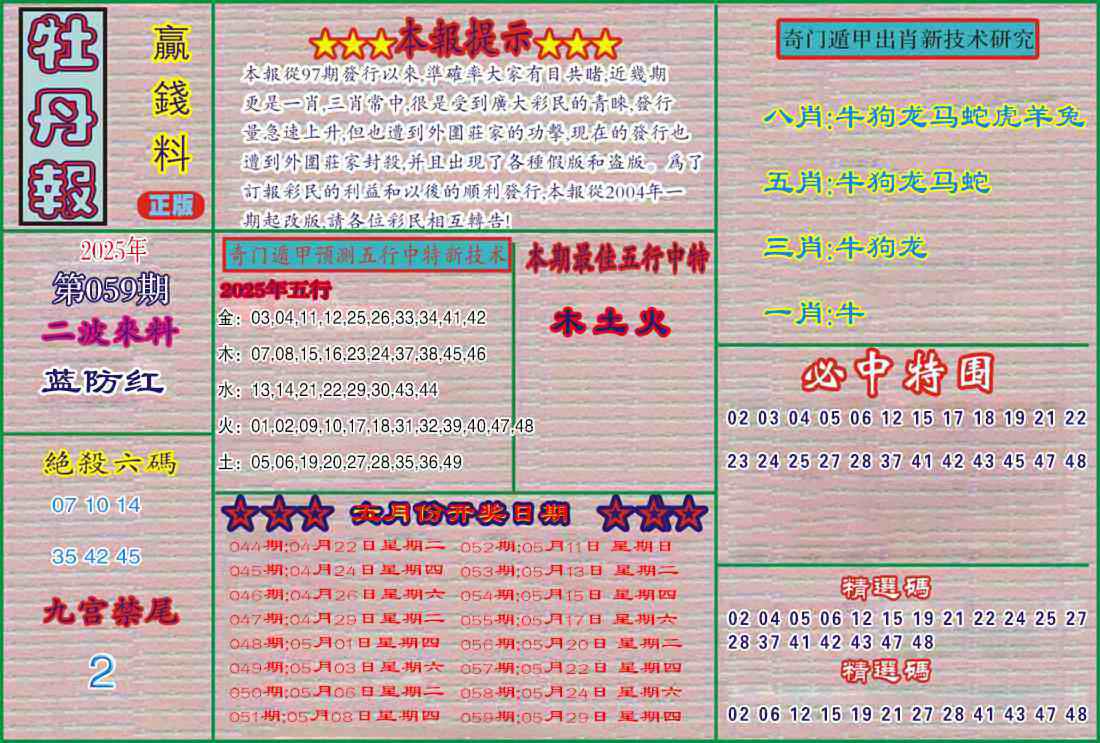 牡丹報
贏錢料
正版
★★★本報提示★★★
本報從97期發行以來,準確率大家有目共睹,近幾期
更是一肖,三肖常中,很是受到廣大彩民的青睞,發行
量急速上升,但也遭到外圍莊家的功擊,現在的發行也
遭到外圍莊家封殺,并且出現了各種假版和盗版。爲了
訂報彩民的利益和以後的順利發行,本報從2004年一
期起改版,請各位彩民相互轉告!
奇门遁甲出肖新技术研究
八肖:牛狗龙马蛇虎羊兔
五肖:牛狗龙马蛇
三肖:牛狗龙
一肖:牛
2025年
第059期
二波來料
蓝防红
絕殺六碼
07 10 14
35 42 45
九宫禁尾
2
奇门遁甲预测五行中特新技术
2025年五行
金：03,04,11,12,25,26,33,34,41,42
木：07,08,15,16,23,24,37,38,45,46
水：13,14,21,22,29,30,43,44
火：01,02,09,10,17,18,31,32,39,40,47,48
土：05,06,19,20,27,28,35,36,49
本期最佳五行中特
木土火
必中特围
02 03 04 05 06 12 15 17 18 19 21 22
23 24 25 27 28 37 41 42 43 45 47 48
☆☆☆六月份开奖日期☆☆☆
044期:04月22日星期二 052期:05月11日 星期日
045期:04月24日星期四 053期:05月13日 星期二
046期:04月26日星期六 054期:05月15日 星期四
047期:04月29日星期二 055期:05月17日 星期六
048期:05月01日星期四 056期:05月20日 星期二
049期:05月03日星期六 057期:05月22日 星期四
050期:05月06日星期二 058期:05月24日 星期六
051期:05月08日星期四 059期:05月29日 星期四
精選碼
02 04 05 06 12 15 19 21 22 24 25 27
28 37 41 42 43 47 48
精選碼
02 06 12 15 19 21 27 28 41 43 47 48